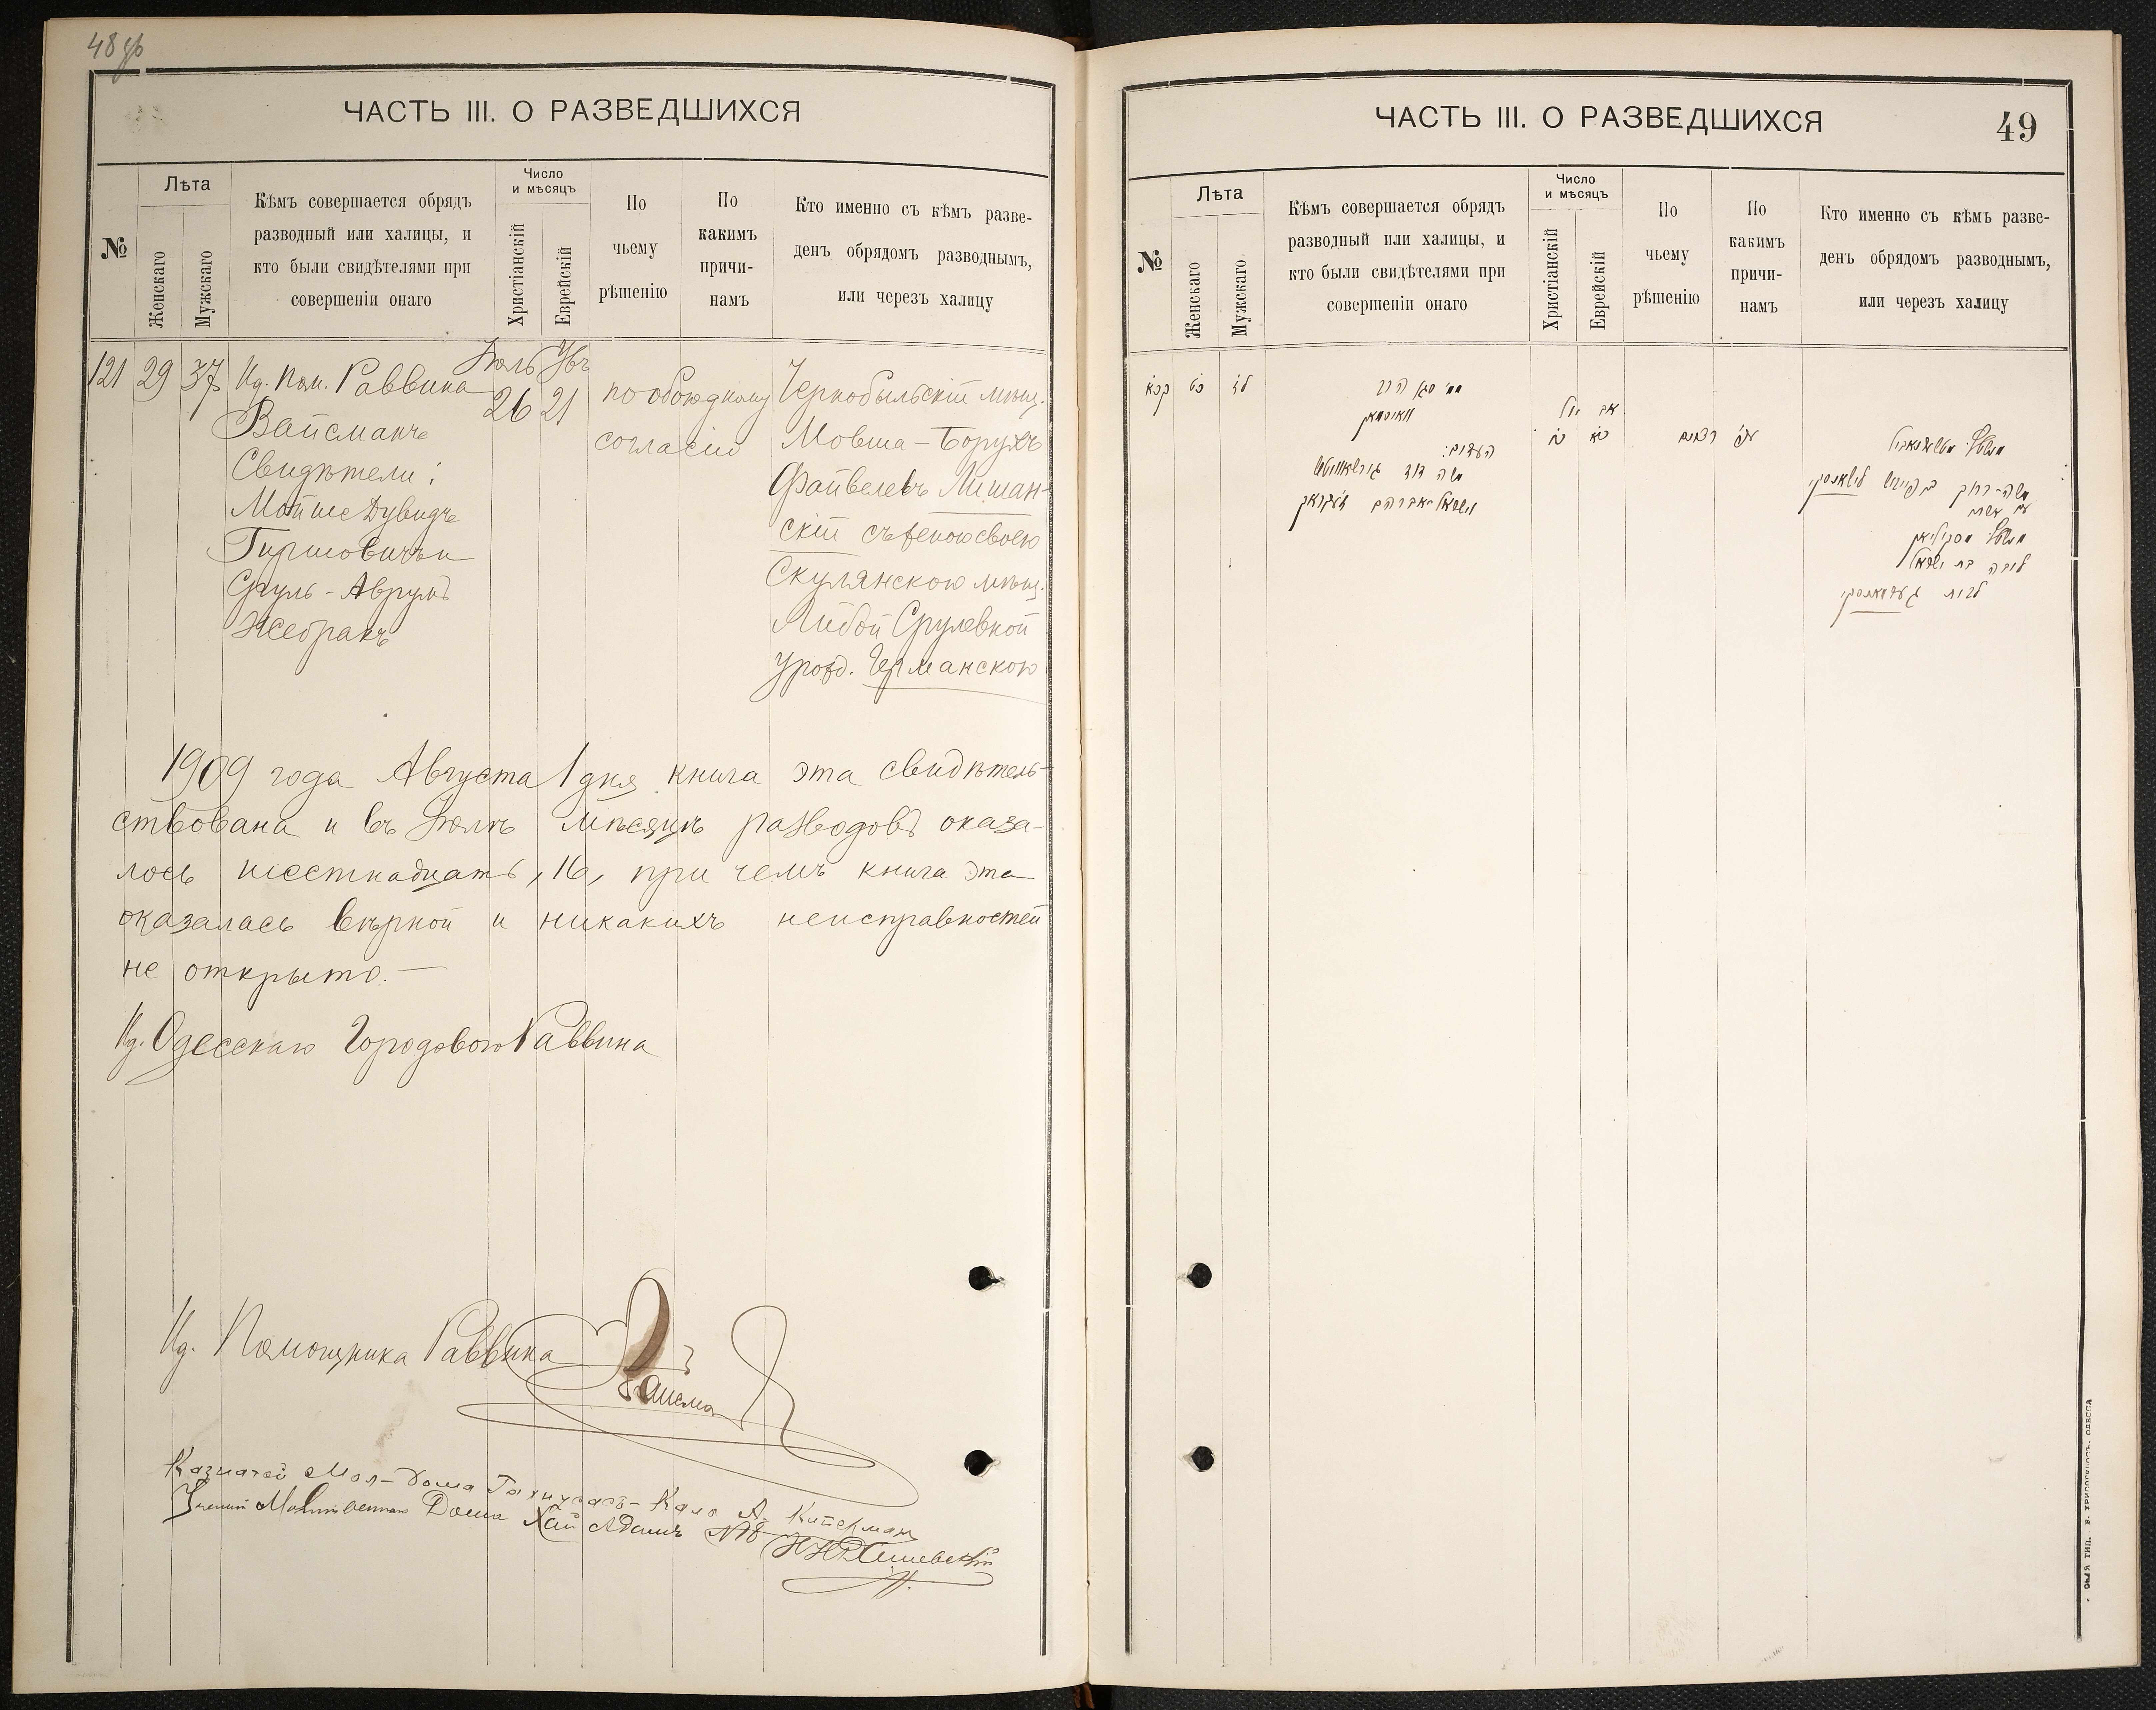 48 об
ЧАСТЬ III. О РАЗВЕДШИХСЯ
№
Лѣта
Женскаго
Мужскаго
Кѣмъ совершается обрядъ
разводный или халицы, и
кто были свидѣтелями при
совершеніи онаго
Число
и мѣсяцъ
Христіанскій
Еврейскій
По
чьему
рѣшенію
По
какимъ
причи-
намъ
Кто именно съ кѣмъ разве-
денъ обрядомъ разводнымъ,
или черезъ халицу
121 29 37
Ид. Пом. Раввина
Вайсманъ
Свидѣтели:
Мойше Дувидъ
Гиршовичъ и
Сруль-Аврумъ
Жебракъ
Іюль
26 21
по обоюдному
согласію
Чернобыльскій мѣщ.
Мовша-Борухъ
Файвелевъ Лишан-
скій съ женою своею
Скулянскою мѣщ.
Либой Срулевной
урожд. Германскою
1909 года Августа 1 дня книга эта свидѣтель-
ствована и въ Іюлѣ мѣсяцѣ разводовъ оказа-
лось шестнадцать, 16, при чемъ книга эта
оказалась вѣрной и никакихъ неисправностей
не открыто.—
Ид. Одесскаго Городового Раввина
Ид. Помощника Раввина
Вайсман
Казначей Мол-Дома А. Киперман
Ученый Молитвеннаго Дома Хай Адамъ №18
ЧАСТЬ III. О РАЗВЕДШИХСЯ
49
№
Лѣта
Женскаго
Мужскаго
Кѣмъ совершается обрядъ
разводный или халицы, и
кто были свидѣтелями при
совершеніи онаго
Число
и мѣсяцъ
Христіанскій
Еврейскій
По
чьему
рѣшенію
По
какимъ
причи-
намъ
Кто именно съ кѣмъ разве-
денъ обрядомъ разводнымъ,
или черезъ халицу
קכא כט לז
סגן הרב
ווייסמאן
העדים:
משה דוד גירשאוויטש
ישראל-אברהם זשעבראק
יול אב
כו כא
רצונם
משה-ברוך ב פייוויש לישאנסקי
עם אשתו
ליבה בת ישראל
לבית גערמאנסקי
ТИП. ОДЕССА